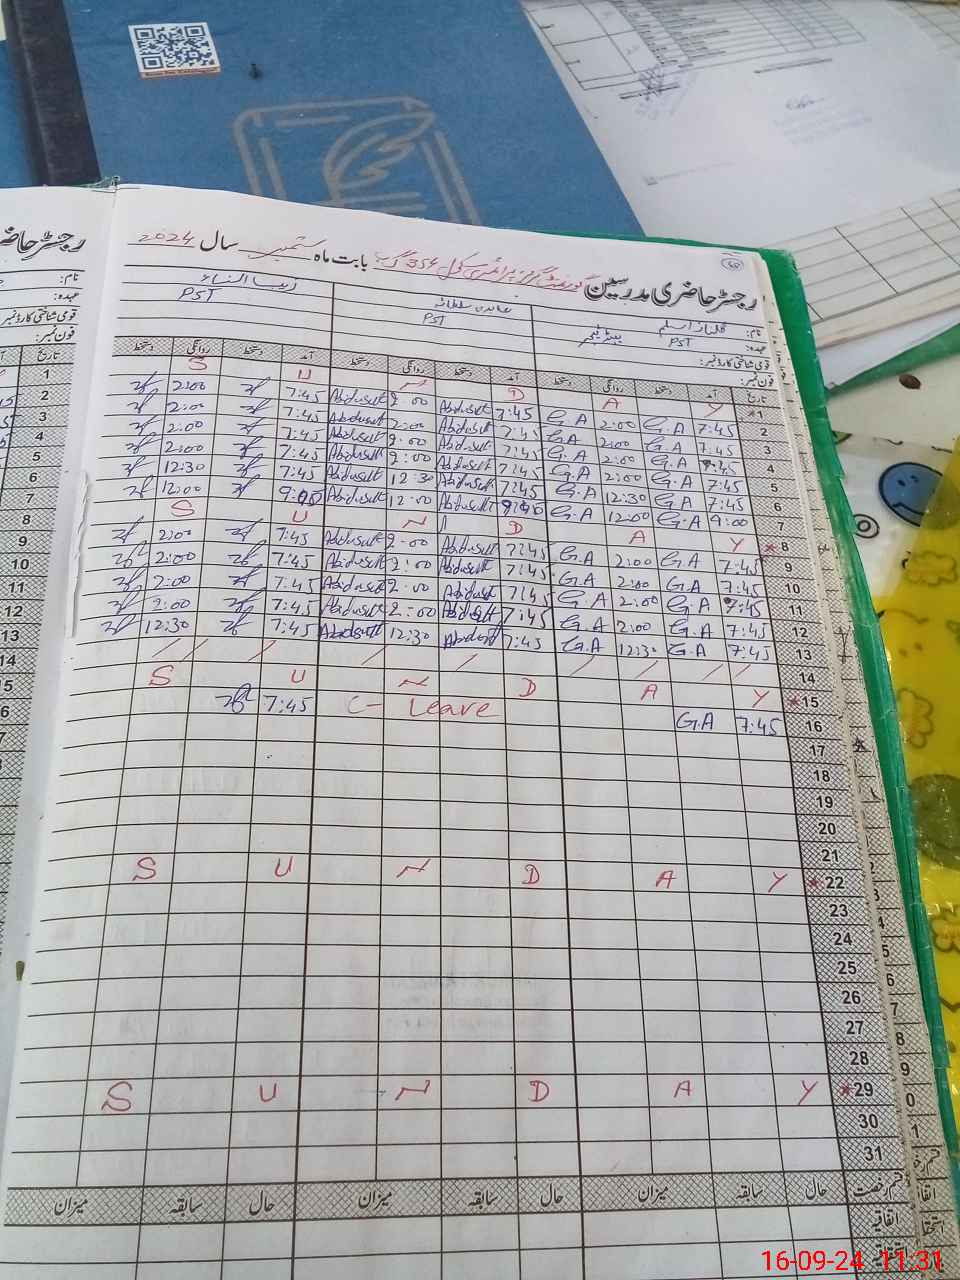 رجسٹر حاضری مدرسین گورنمنٹ گرلز پرائمری سکول 354 گ ب بابت ماہ ستمبر سال 2024
نام: گلناز اسلم عابدہ سلطانہ زیب النساء
عہدہ: PST ہیڈ ٹیچر PST PST
قومی شناختی کارڈ نمبر:
فون نمبر:
تاریخ آمد دستخط روانگی دستخط آمد دستخط روانگی دستخط آمد دستخط روانگی دستخط
S U N D A Y *1
2:00 7:45 Abidasult 2:00 Abidasult 7:45 G.A 2:00 G.A 7:45 2
2:00 7:45 Abidasult 2:00 Abidasult 7:45 G.A 2:00 G.A 7:45 3
2:00 7:45 Abidasult 2:00 Abidasult 7:45 G.A 2:00 G.A 7:45 4
2:00 7:45 Abidasult 2:00 Abidasult 7:45 G.A 2:00 G.A 7:45 5
12:30 7:45 Abidasult 12:30 Abidasult 7:45 G.A 12:30 G.A 7:45 6
12:00 9:00 Abidasult 12:00 Abidasult 9:00 G.A 12:00 G.A 9:00 7
S U N D A Y *8
2:00 7:45 Abidasult 2:00 Abidasult 7:45 G.A 2:00 G.A 7:45 9
2:00 7:45 Abidasult 2:00 Abidasult 7:45 G.A 2:00 G.A 7:45 10
2:00 7:45 Abidasult 2:00 Abidasult 7:45 G.A 2:00 G.A 7:45 11
2:00 7:45 Abidasult 2:00 Abidasult 7:45 G.A 2:00 G.A 7:45 12
12:30 7:45 Abidasult 12:30 Abidasult 7:45 G.A 12:30 G.A 7:45 13
14
S U N D A Y *15
7:45 C- Leave G.A 7:45 16
17
18
19
20
21
S U N D A Y *22
23
24
25
26
27
28
S U N D A Y *29
30
31
قسم رخصت حال سابقہ میزان حال سابقہ میزان حال سابقہ میزان
اتفاقیہ
16-09-24 11:31